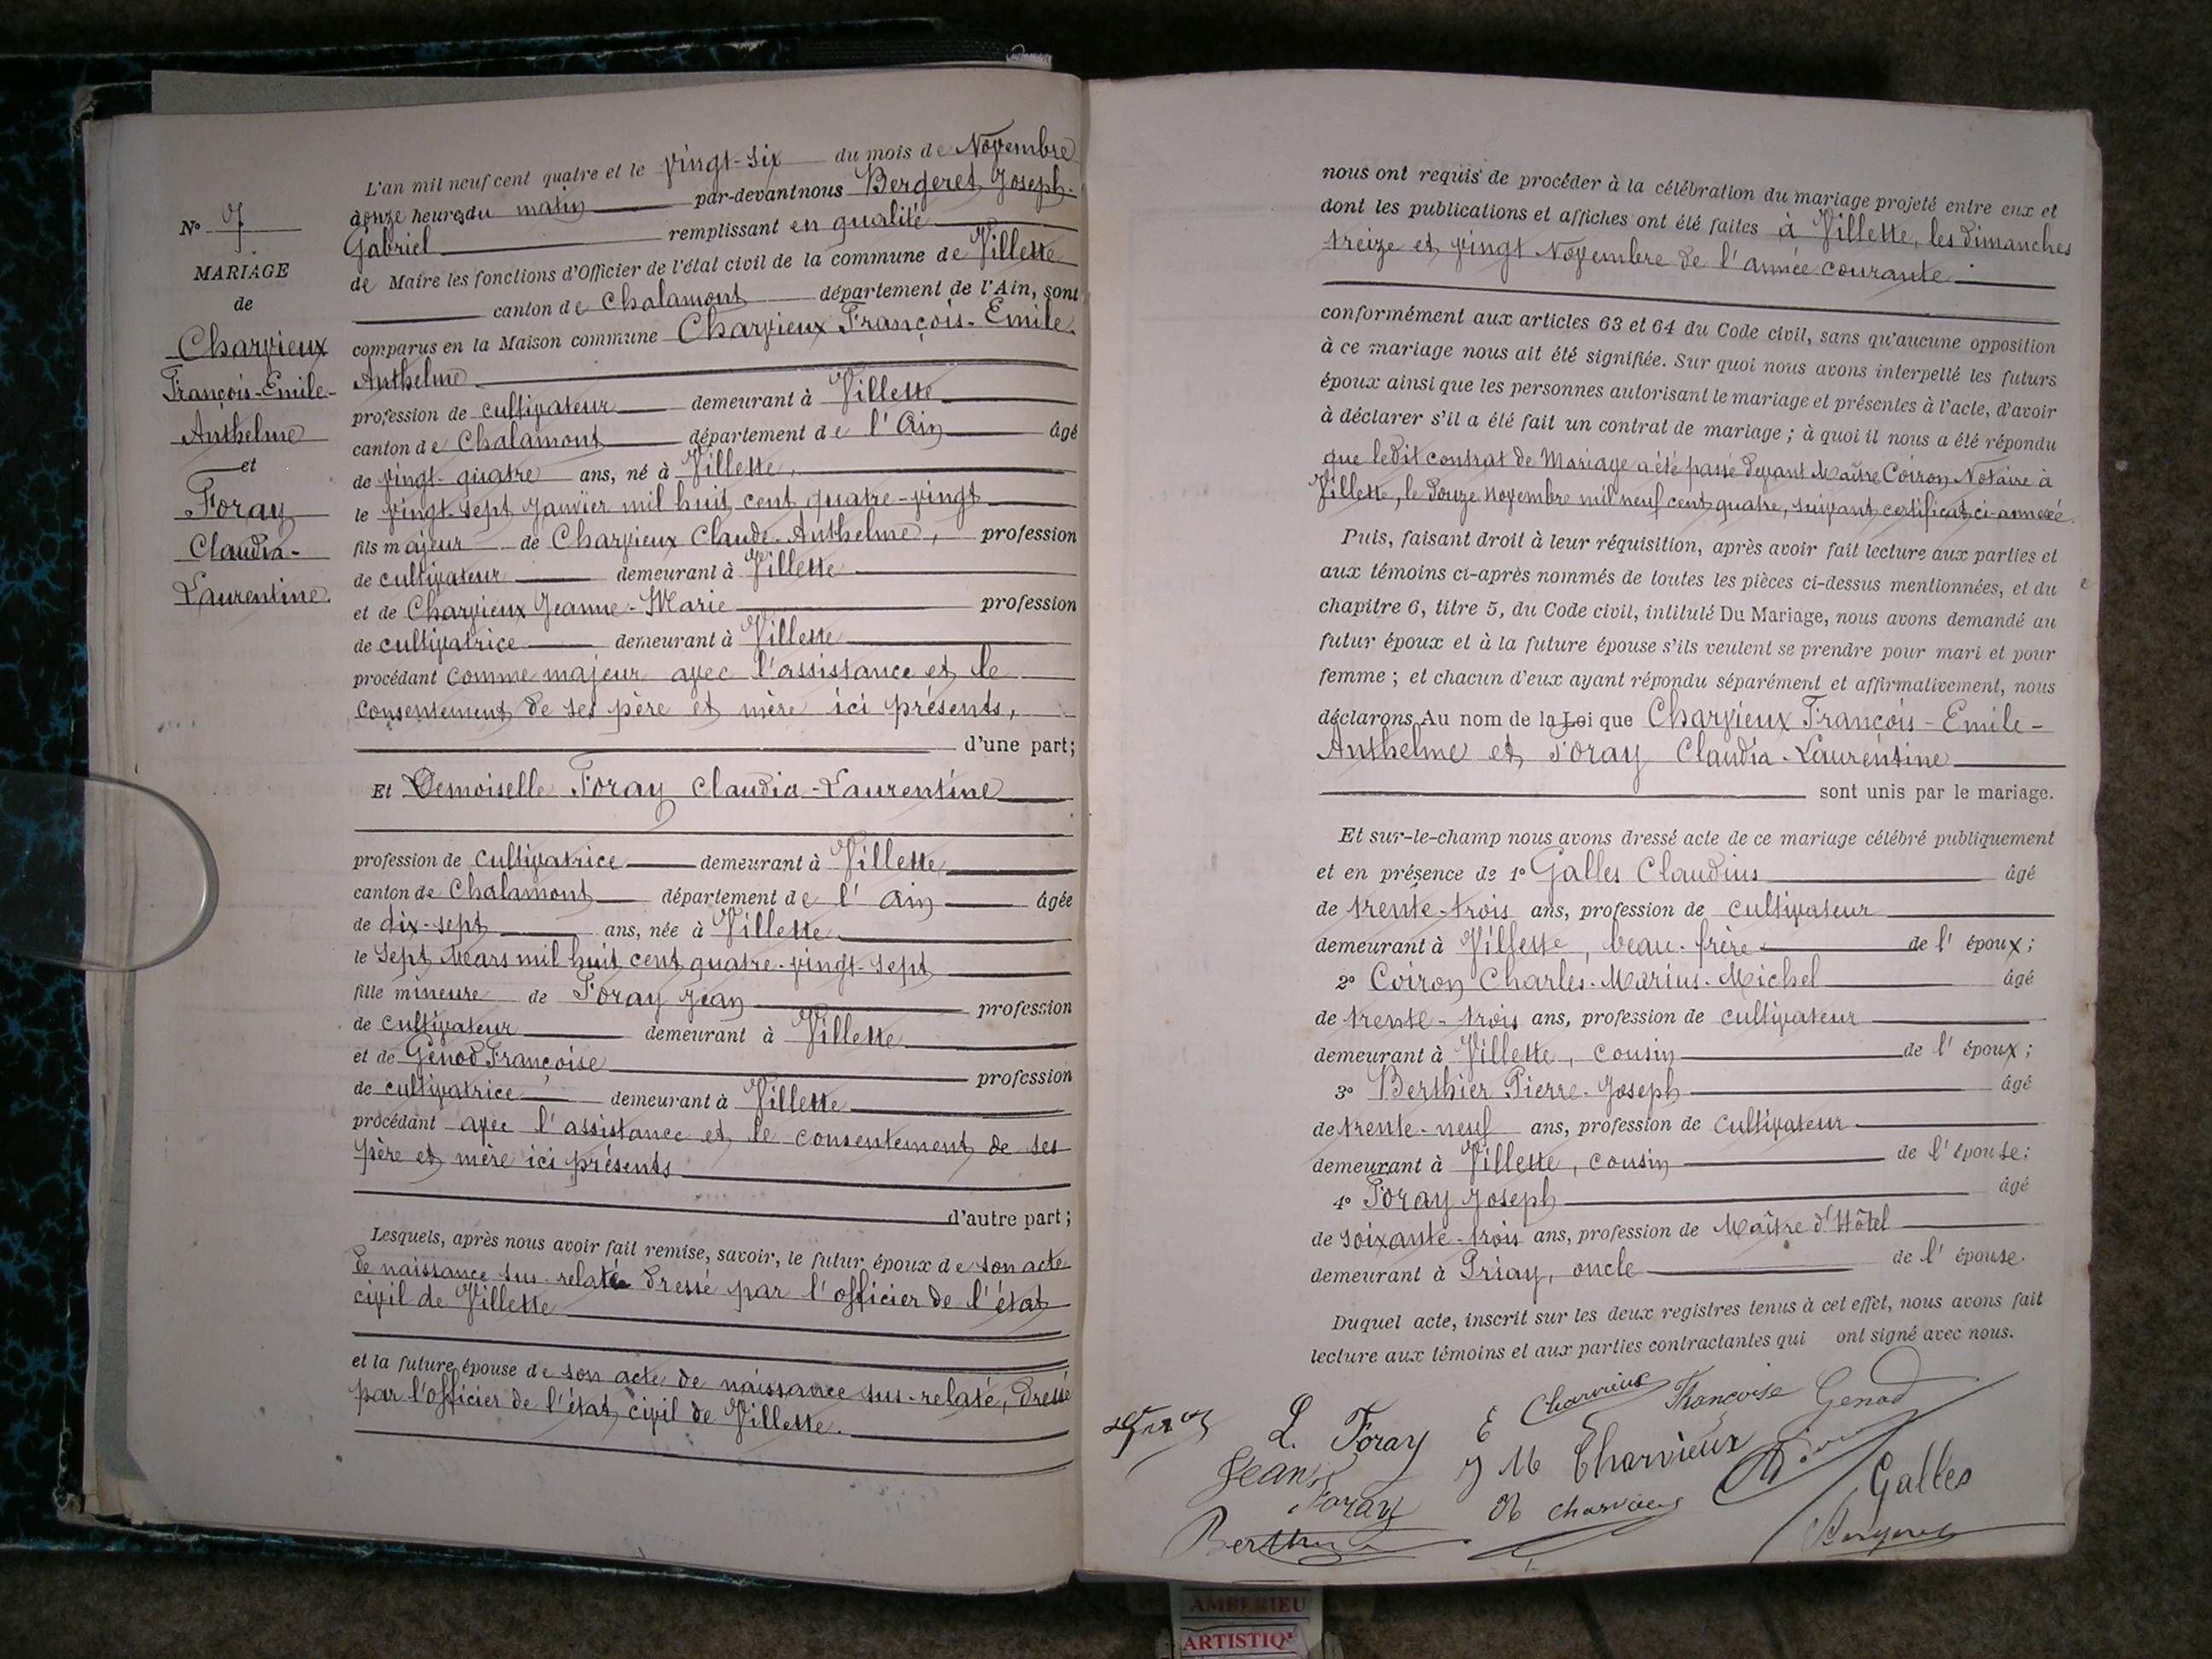 N° 7
MARIAGE
de
Charvieux
François-Emile-
Anthelme
et
Foray
Claudia-
Laurentine.
L'an mil neuf cent quatre et le vingt-six du mois de Novembre
à onze heures du matin par-devant nous Bergeret Joseph-
Gabriel remplissant en qualité
de Maire les fonctions d'Officier de l'état civil de la commune de Villette
canton de Chalamont département de l'Ain, sont
comparus en la Maison commune Charvieux François-Emile-
Anthelme
profession de cultivateur demeurant à Villette
canton de Chalamont département de l'Ain âgé
de vingt-quatre ans, né à Villette,
le vingt-sept Janvier mil huit cent quatre-vingt
fils majeur de Charvieux Claude-Anthelme, profession
de cultivateur demeurant à Villette
et de Charvieux Jeanne-Marie profession
de cultivatrice demeurant à Villette
procédant comme majeur avec l'assistance et le
consentement de ses père et mère ici présents,
d'une part;
Et Demoiselle Foray Claudia-Laurentine
profession de cultivatrice demeurant à Villette
canton de Chalamont département de l'Ain âgée
de dix-sept ans, née à Villette
le sept Mars mil huit cent quatre-vingt-sept
fille mineure de Foray Jean profession
de cultivateur demeurant à Villette
et de Genod Françoise profession
de cultivatrice demeurant à Villette
procédant avec l'assistance et le consentement de ses
père et mère ici présents
d'autre part;
Lesquels, après nous avoir fait remise, savoir, le futur époux de son acte
de naissance sus-relaté dressé par l'officier de l'état
civil de Villette
et la future épouse de son acte de naissance sus-relaté, dressé
par l'officier de l'état civil de Villette.
nous ont requis de procéder à la célébration du mariage projeté entre eux et
dont les publications et affiches ont été faites à Villette, les dimanches
treize et vingt Novembre de l'année courante.
conformément aux articles 63 et 64 du Code civil, sans qu'aucune opposition
à ce mariage nous ait été signifiée. Sur quoi nous avons interpellé les futurs
époux ainsi que les personnes autorisant le mariage et présentes à l'acte, d'avoir
à déclarer s'il a été fait un contrat de mariage ; à quoi il nous a été répondu
que ledit contrat de Mariage a été passé devant Maître Coiron Notaire à
Villette, le douze Novembre mil neuf cent quatre, suivant certificat ci-annexé.
Puis, faisant droit à leur réquisition, après avoir fait lecture aux parties et
aux témoins ci-après nommés de toutes les pièces ci-dessus mentionnées, et du
chapitre 6, titre 5, du Code civil, intitulé Du Mariage, nous avons demandé au
futur époux et à la future épouse s'ils veulent se prendre pour mari et pour
femme ; et chacun d'eux ayant répondu séparément et affirmativement, nous
déclarons Au nom de la Loi que Charvieux François-Emile-
Anthelme et Foray Claudia-Laurentine
sont unis par le mariage.
Et sur-le-champ nous avons dressé acte de ce mariage célébré publiquement
et en présence de 1° Galles Claudius âgé
de trente-trois ans, profession de cultivateur
demeurant à Villette, beau-frère de l'époux;
2° Coiron Charles-Marius-Michel âgé
de trente-trois ans, profession de cultivateur
demeurant à Villette, cousin de l'époux;
3° Berthier Pierre-Joseph âgé
de trente-neuf ans, profession de cultivateur
demeurant à Villette, cousin de l'épouse;
4° Foray Joseph âgé
de soixante-trois ans, profession de Maître d'Hôtel
demeurant à Priay, oncle de l'épouse.
Duquel acte, inscrit sur les deux registres tenus à cet effet, nous avons fait
lecture aux témoins et aux parties contractantes qui ont signé avec nous.
L. Foray E Charvieux Françoise Genod
Jean Foray J M Charvieux Galles
Charvieux Bergeret
AMBERIEU
ARTISTIQ